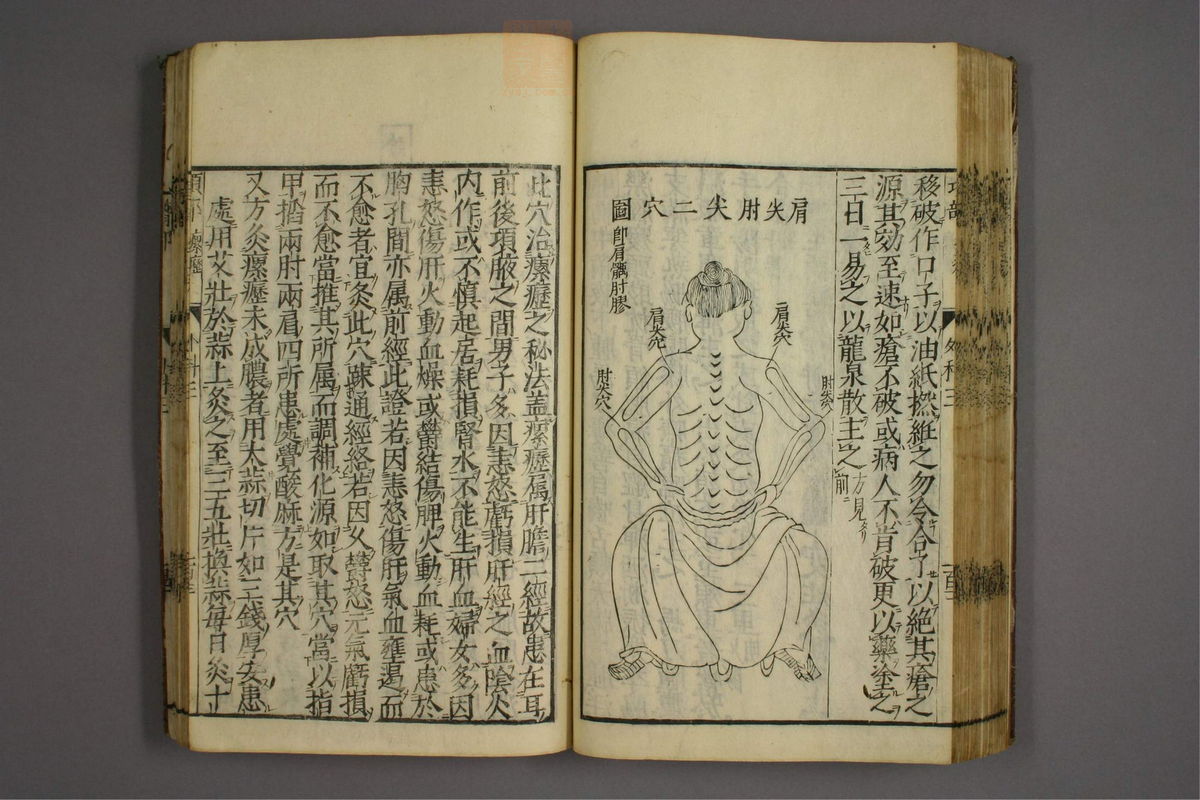 移破作口子以油紙撚維之勿令合了以絶其瘡之
源其効至速如瘡不破或病人不肯破更以藥塗之
三日一易之以龍泉散主之方見前
肩尖肘尖二穴圖
即肩髃肘膠
肩尖穴
肩尖穴
肘尖穴
肘尖穴
此穴治瘰癧之秘法盖瘰癧属肝膽二經故患在耳
前後項腋之間男子多因恚怒虧損肝經之血陰火
内作或不慎起居耗損腎水不能生肝血婦女多因
恚怒傷肝火動血燥或欝結傷脾火動血耗或患於
胸乳間亦属前經此證若因恚怒傷肝氣血壅遏而
不愈者宜灸此穴踈通經絡若因久欝怒元氣虧損
而不愈當推其所属而調補化源如取其穴當以指
甲搯兩肘兩肩四所患處覺酸麻方是其穴
又方灸瘰癧未成膿者用大蒜切片如三錢厚安患
處用艾壯於蒜上灸之至三五壯換蒜毎日灸十
瘰癧
外科三